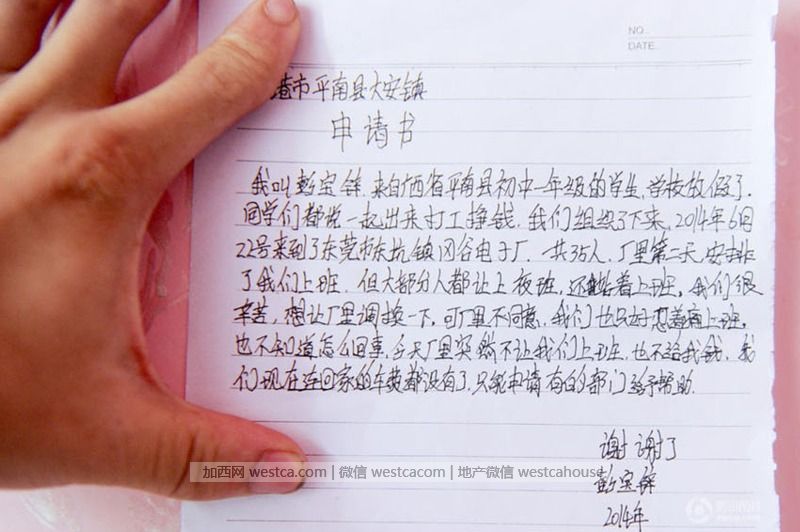 NO.
DATE.
港市平南县大安镇
申请书
我叫彭宝锋,来自广西省平南县初中一年级的学生,学校放假了.
同学们都说一起出来打工挣钱.我们组织了下来,2014年6月
22号来到了东莞市东坑镇冈谷电子厂.一共35人,厂里第二天,安排
了我们上班.但大部分人都让上夜班,还站着上班,我们很
辛苦,想让厂里调换一下,可厂里不同意,我们也只好忍着痛上班,
也不知道怎么回事,今天厂里突然不让我们上班,也不给我钱,我
们现在连回家的车费都没有了,只能申请有的部门给予帮助.
谢谢了
彭宝锋
2014年
加西网 westca.com | 微信 westcacom | 地产微信 westcahouse